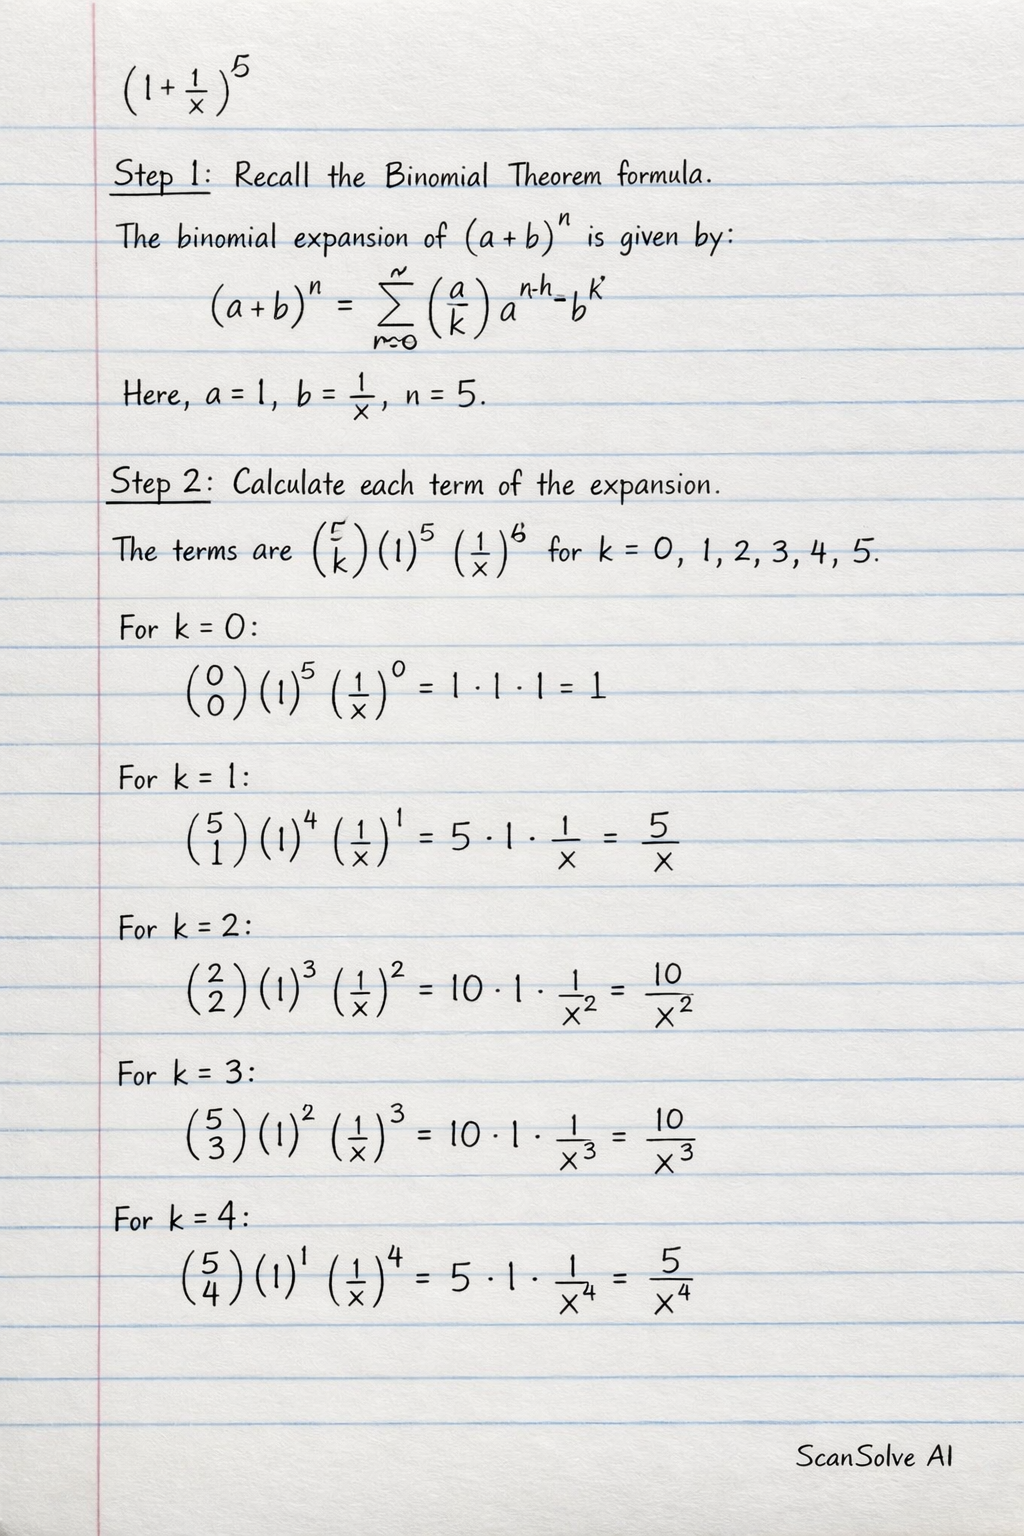 (1 + 1/x)^5
Step 1: Recall the Binomial Theorem formula.
The binomial expansion of (a + b)^n is given by:
(a + b)^n = ∑ (a/k) a^n-h- b^k
Here, a = 1, b = 1/x, n = 5.
Step 2: Calculate each term of the expansion.
The terms are (5 k) (1)^5 (1/x)^6 for k = 0, 1, 2, 3, 4, 5.
For k = 0:
(0 0) (1)^5 (1/x)^0 = 1 · 1 · 1 = 1
For k = 1:
(5 1) (1)^4 (1/x)^1 = 5 · 1 · 1/x = 5/x
For k = 2:
(2 2) (1)^3 (1/x)^2 = 10 · 1 · 1/x^2 = 10/x^2
For k = 3:
(5 3) (1)^2 (1/x)^3 = 10 · 1 · 1/x^3 = 10/x^3
For k = 4:
(5 4) (1)^1 (1/x)^4 = 5 · 1 · 1/x^4 = 5/x^4
ScanSolve AI